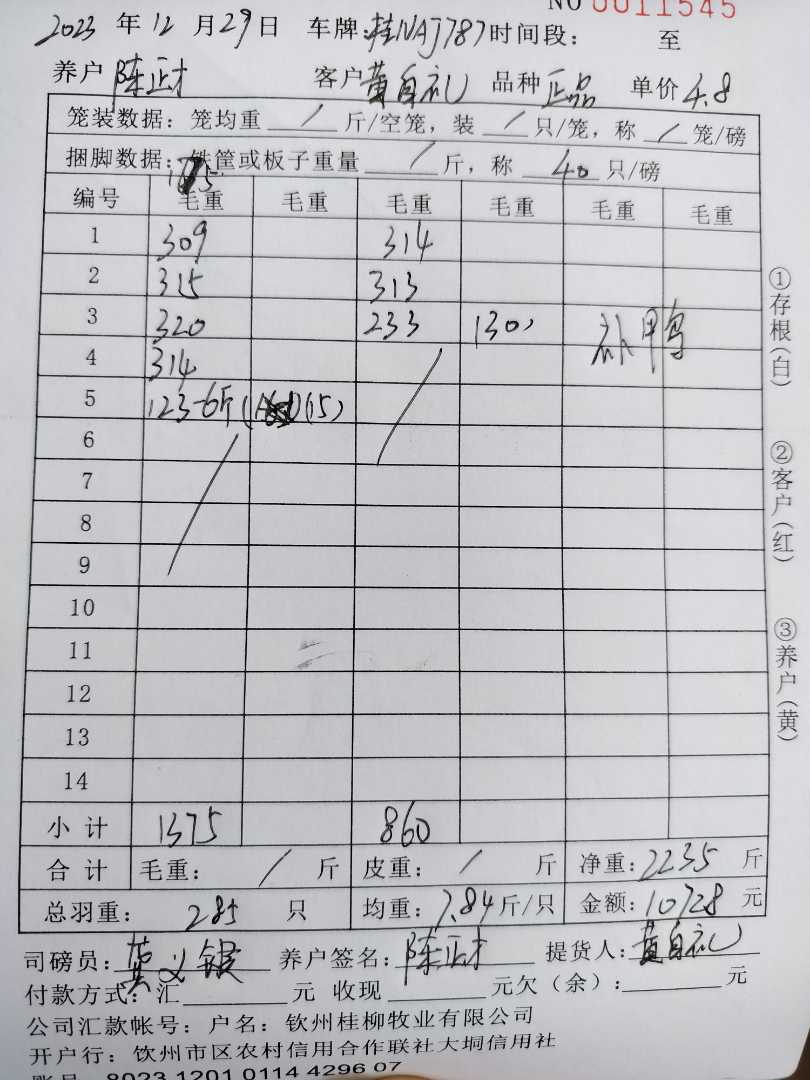 NO 0011545
2023 年 12 月 29 日 车牌: 桂NAJ787 时间段: 至
养户 陈正才 客户 黄自礼 品种 正品 单价 4.8
笼装数据: 笼均重 / 斤/空笼, 装 / 只/笼, 称 / 笼/磅
捆脚数据: 铁筐或板子重量 / 斤, 称 40 只/磅
175
编号 毛重 毛重 毛重 毛重 毛重 毛重
1 309 314
2 315 313
3 320 233 (30) 补鸭
4 314
5 123-6斤 (15)
6
7
8
9
10
11
12
13
14
小计 1375 860
合计 毛重: / 斤 皮重: / 斤 净重: 2235 斤
总羽重: 285 只 均重: 7.84 斤/只 金额: 10728 元
司磅员: 莫义银 养户签名: 陈正才 提货人: 黄自礼
付款方式: 汇 元 收现 元欠(余): 元
公司汇款帐号: 户名: 钦州桂柳牧业有限公司
开户行: 钦州市区农村信用合作联社大垌信用社
账号 8023 1201 0114 4296 07
①存根(白)
②客户(红)
③养户(黄)